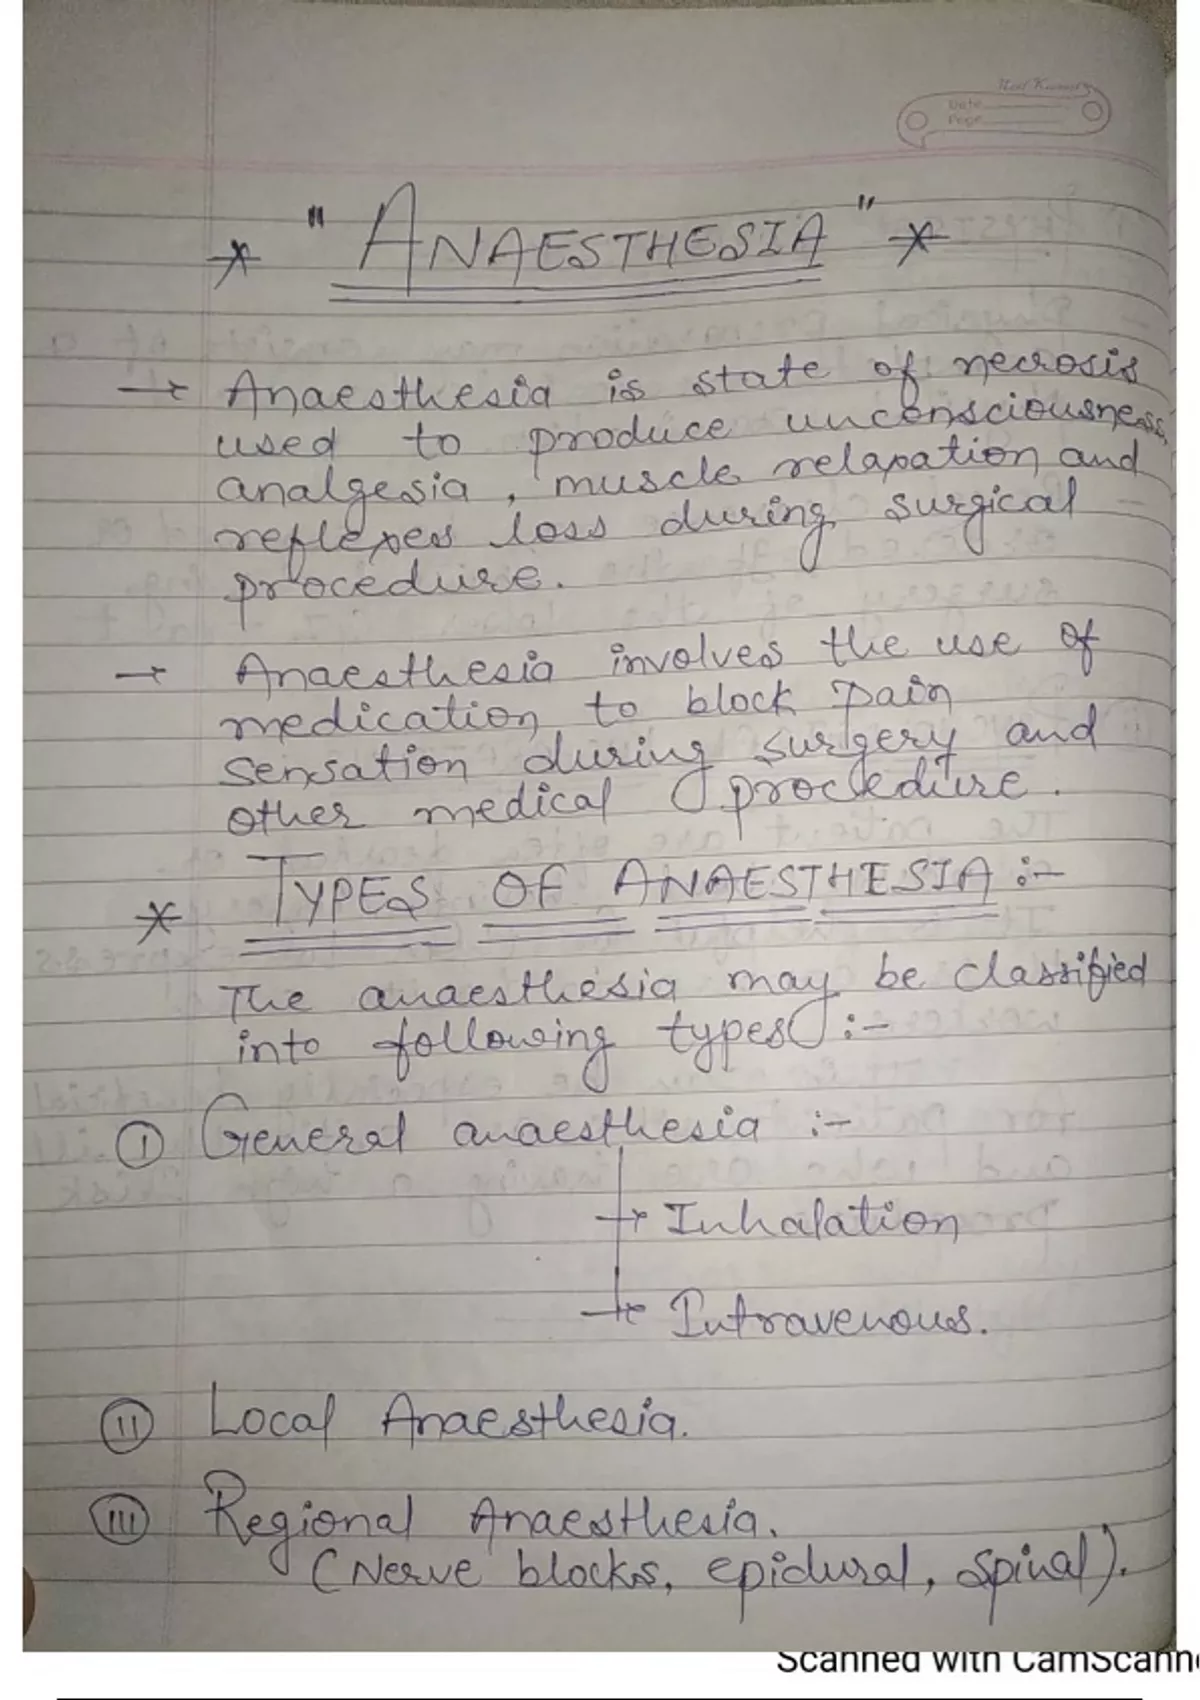 Neel Kamal
Date
Page
* "ANAESTHESIA" *
→ Anaesthesia is state of necrosis
used to produce unconsciousness,
analgesia, muscle relaxation and
reflexes loss during surgical
procedure.
→ Anaesthesia involves the use of
medication to block pain
sensation during surgery and
other medical procedure.
* TYPES OF ANAESTHESIA :-
The anaesthesia may be classified
into following types :-
(I) General anaesthesia :-
→ Inhalation
→ Intravenous.
(II) Local Anaesthesia.
(III) Regional Anaesthesia.
(Nerve blocks, epidural, Spinal).
Scanned with CamScann